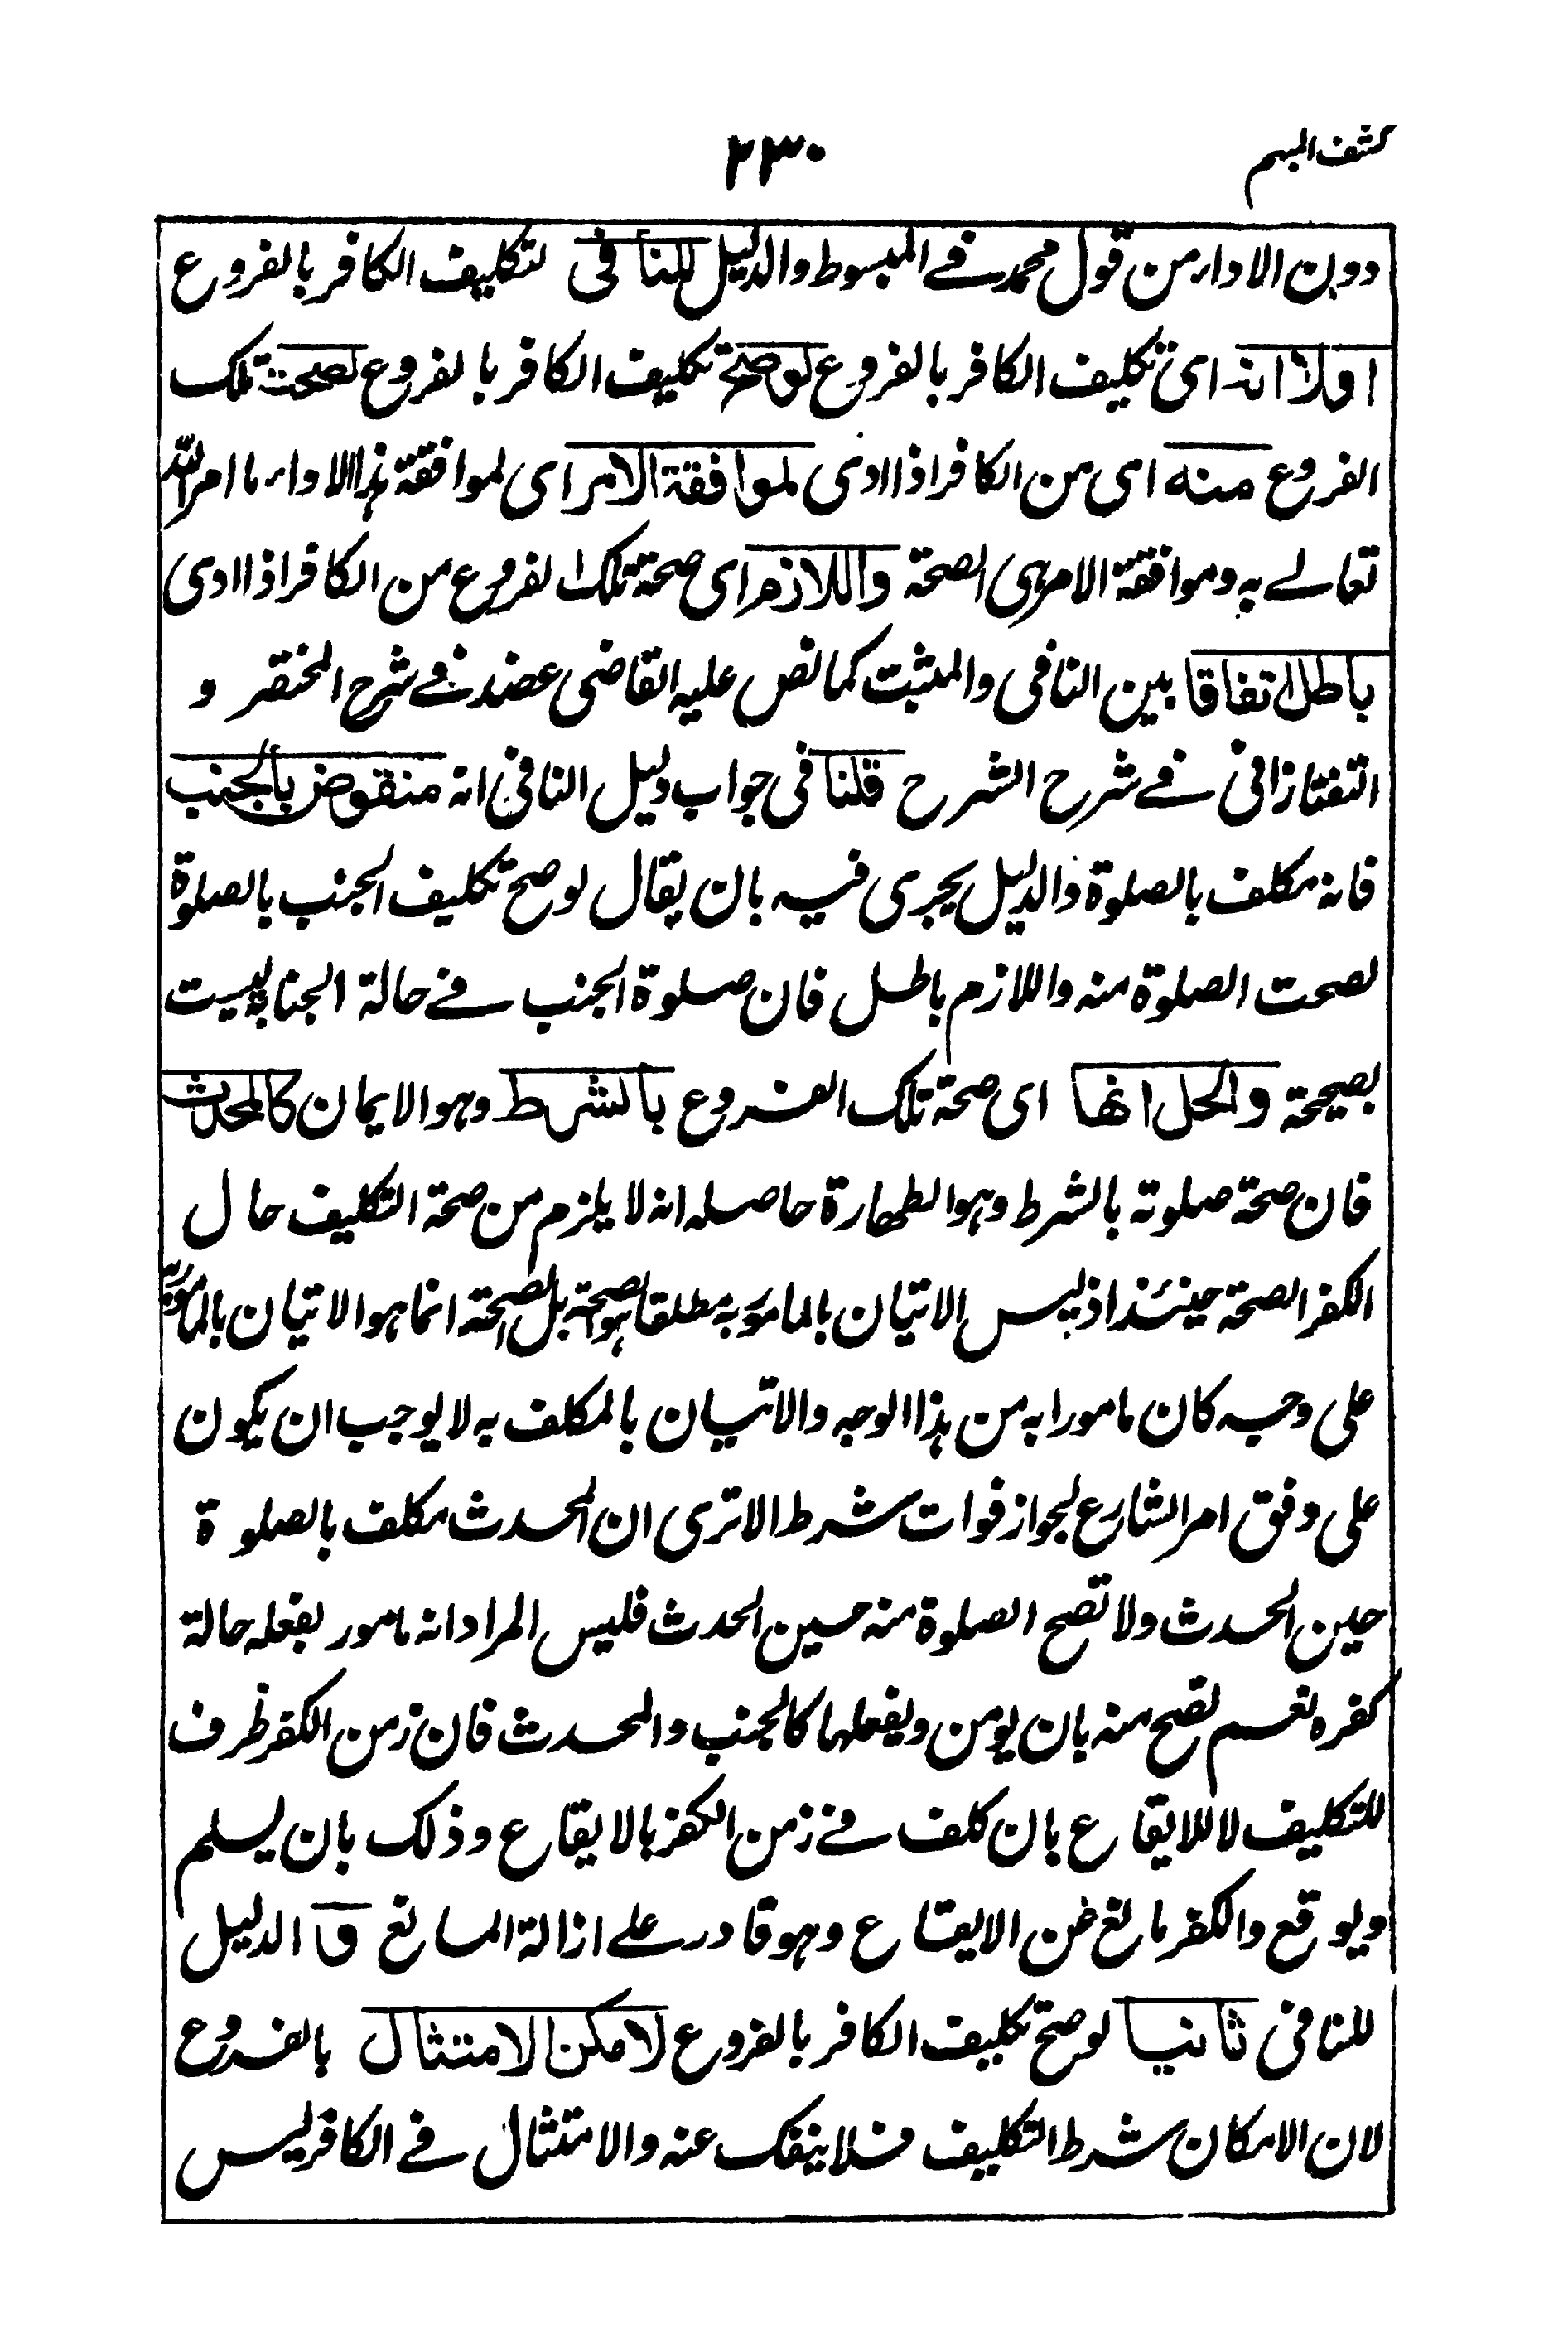 كشف المبهم
٢٣٠
دون الاداء من قول محمد في المبسوط والدليل للنافى لتكليف الكافر بالفروع
اولا انه اى تكليف الكافر بالفروع لو صح تكليف الكافر بالفروع لصحت تلك
الفروع منه اى من الكافر اذا ادى لموافقة الامر اى لموافقة هذا الاداء ما امر الله
تعالى به وموافقة الامر هى الصحة واللازم اى صحة تلك الفروع من الكافر اذا ادى
باطل اتفاقا بين النافى والمثبت كما نص عليه القاضى عضد في شرح المختصر و
التفتازانى في شرح الشرح قلنا فى جواب دليل النافى انه منقوض بالجنب
فانه مكلف بالصلوة والدليل يجرى فيه بان يقال لو صح تكليف الجنب بالصلوة
لصحت الصلوة منه واللازم باطل فان صلوة الجنب في حالة الجنابة ليست
بصحيحة والحل انها اى صحة تلك الفروع بالشرط وهو الايمان كالمحدث
فان صحة صلوته بالشرط وهو الطهارة حاصله انه لا يلزم من صحة التكليف حال
الكفر الصحة حينئذ اذ ليس الاتيان بالمامور به مطلقا هو الصحة بل الصحة انما هو الاتيان بالمامور به
على وجه كان مامورا به من هذا الوجه والاتيان بالمكلف به لا يوجب ان يكون
على وفق امر الشارع لجواز فوات شرط الا ترى ان المحدث مكلف بالصلوة
حين الحدث ولا تصح الصلوة منه حين الحدث فليس المراد انه مامور بفعله حالة
كفره نعم تصح منه بان يومن ويفعلها كالجنب والمحدث فان زمن الكفر ظرف
للتكليف لا للايقاع بان كلف في زمن الكفر بالايقاع وذلك بان يسلم
ويوقع والكفر مانع عن الايقاع وهو قادر على ازالة المانع و الدليل
للنافى ثانيا لو صح تكليف الكافر بالفروع لامكن الامتثال بالفروع
لان الامكان شرط التكليف فلا ينفك عنه والامتثال في الكافر ليس